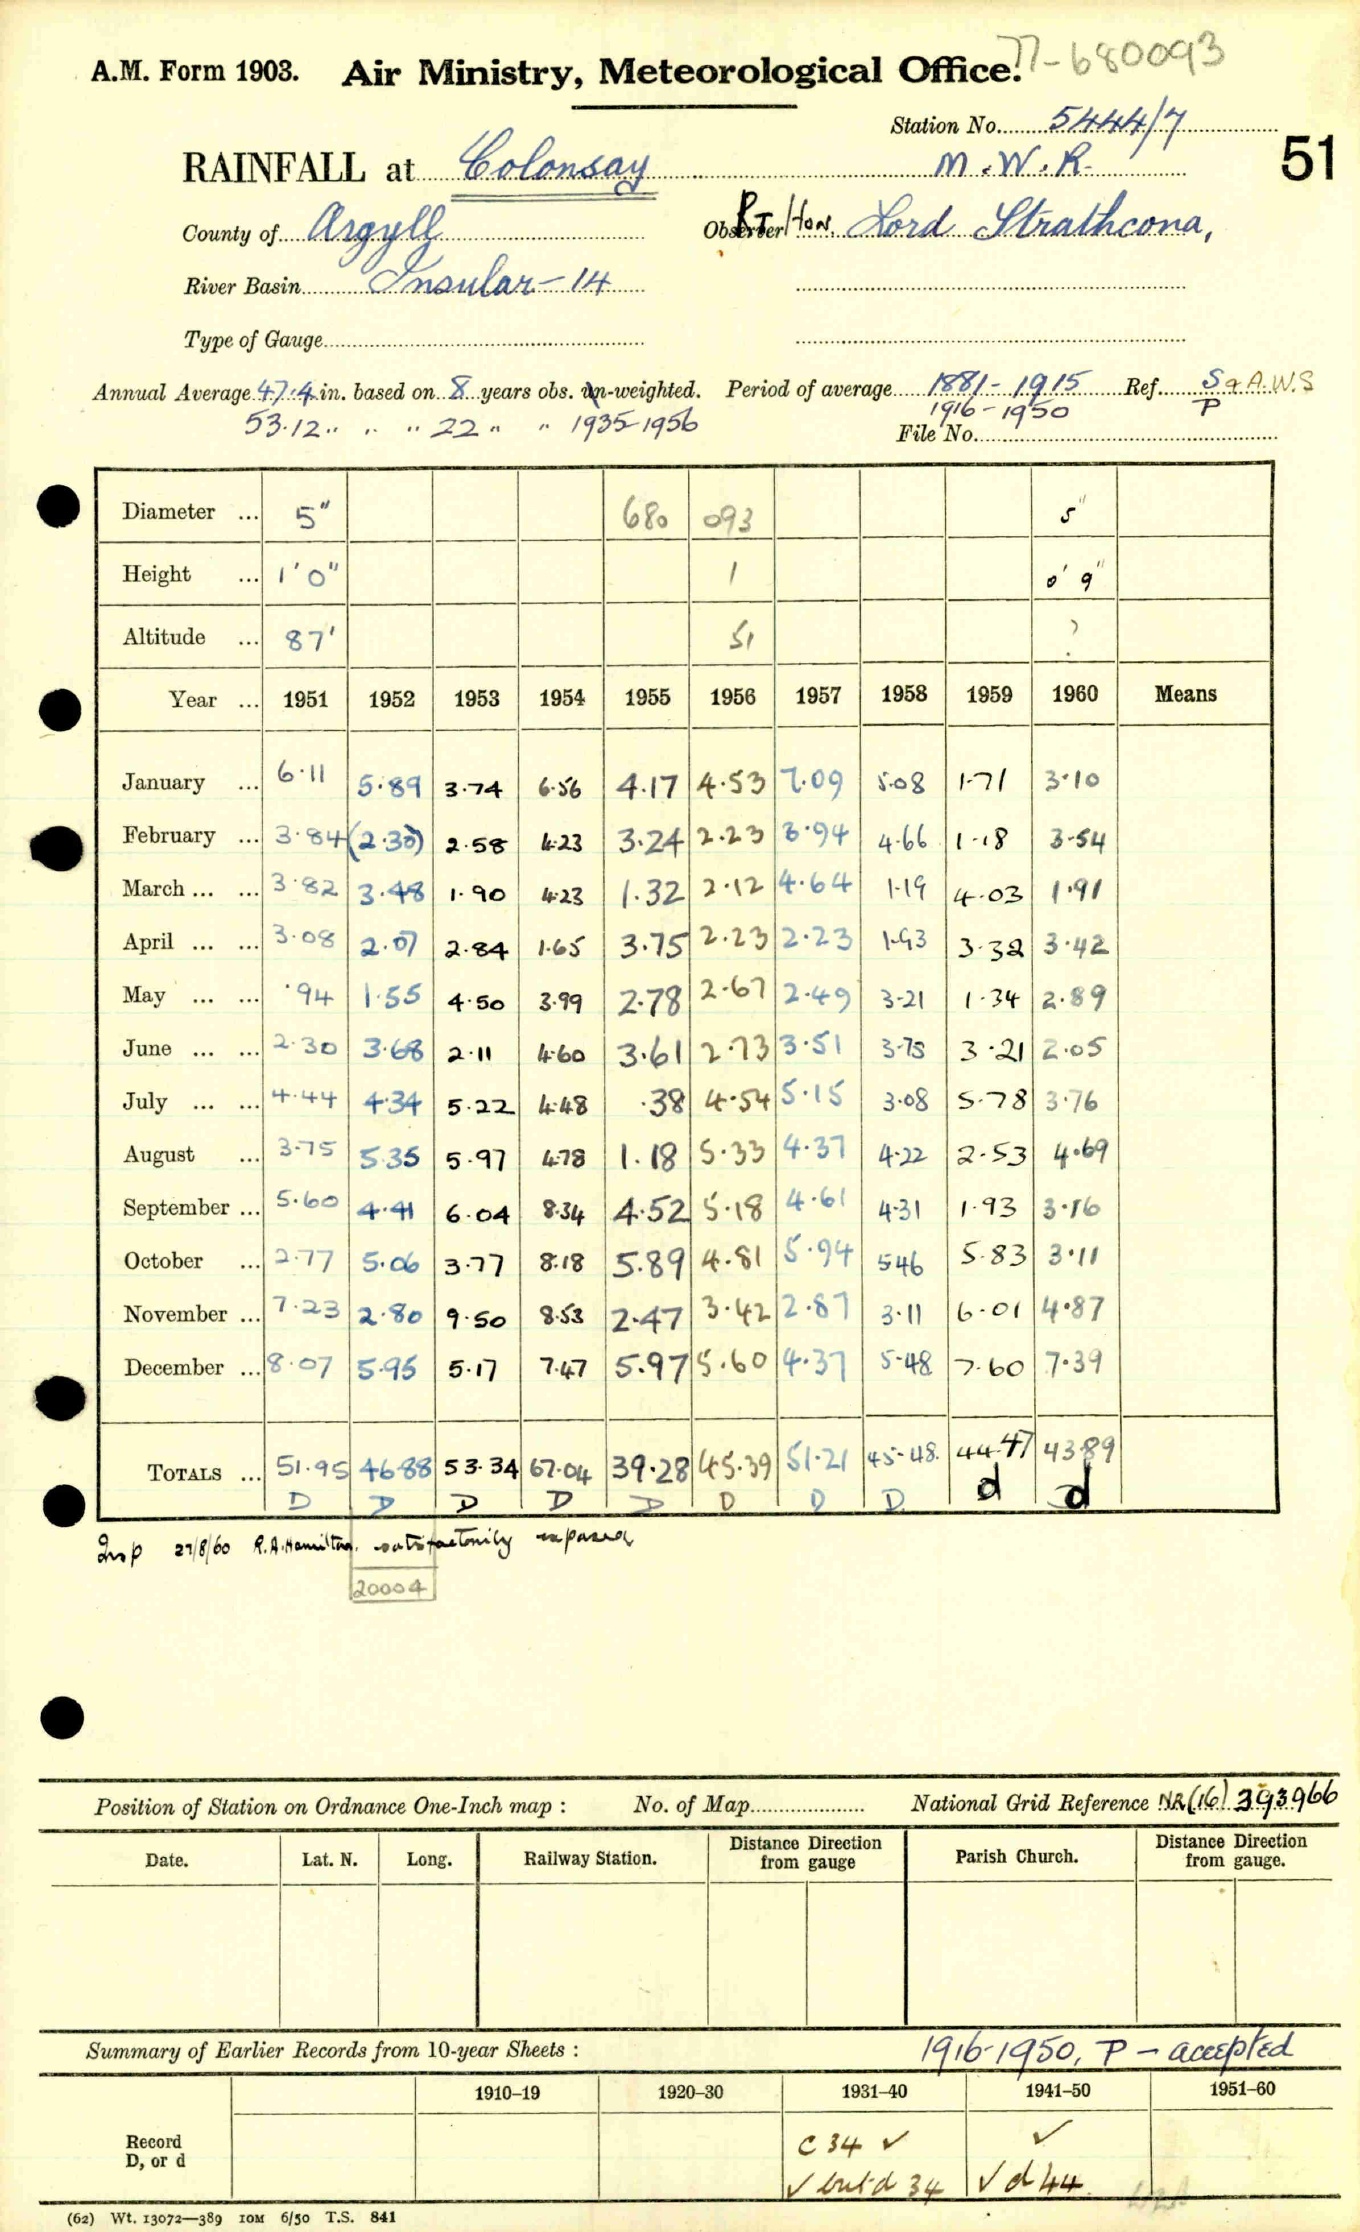 77-680093
A.M. Form 1903. Air Ministry, Meteorological Office.
Station No. 5444/7
RAINFALL at Colonsay M.W.R. 51
County of Argyll Observer Rt Hon. Lord Strathcona,
River Basin Insular-14
Type of Gauge
Annual Average 47.4 in. based on 8 years obs. un-weighted. Period of average 1881-1915 Ref. S & A.W.S
53.12 " " " 22 " " 1935-1956 1916-1950 P
File No.
Diameter ... 5" 680 093 5"
Height ... 1'0" 1 0' 9"
Altitude ... 87' 51 ?
Year ... 1951 1952 1953 1954 1955 1956 1957 1958 1959 1960 Means
January ... 6.11 5.89 3.74 6.56 4.17 4.53 7.09 5.08 1.71 3.10
February ... 3.84 (2.30) 2.58 4.23 3.24 2.23 3.94 4.66 1.18 3.54
March ... ... 3.82 3.48 1.90 4.23 1.32 2.12 4.64 1.19 4.03 1.91
April ... ... 3.08 2.07 2.84 1.65 3.75 2.23 2.23 1.93 3.32 3.42
May ... ... .94 1.55 4.50 3.99 2.78 2.67 2.49 3.21 1.34 2.89
June ... ... 2.30 3.68 2.11 4.60 3.61 2.73 3.51 3.75 3.21 2.05
July ... ... 4.44 4.34 5.22 4.48 .38 4.54 5.15 3.08 5.78 3.76
August ... 3.75 5.35 5.97 4.78 1.18 5.33 4.37 4.22 2.53 4.69
September ... 5.60 4.41 6.04 8.34 4.52 5.18 4.61 4.31 1.93 3.16
October ... 2.77 5.06 3.77 8.18 5.89 4.81 5.94 5.46 5.83 3.11
November ... 7.23 2.80 9.50 8.53 2.47 3.42 2.87 3.11 6.01 4.87
December ... 8.07 5.95 5.17 7.47 5.97 5.60 4.37 5.48 7.60 7.39
TOTALS ... 51.95 46.88 53.34 67.04 39.28 45.39 51.21 45.48 44.47 43.89
D D D D D D D D d d
Insp 27/8/60 R.A. Hamilton. satisfactorily exposed
20004
Position of Station on Ordnance One-Inch map : No. of Map National Grid Reference NR (16) 393966
Date. Lat. N. Long. Railway Station. Distance Direction from gauge Parish Church. Distance Direction from gauge.
Summary of Earlier Records from 10-year Sheets : 1916-1950, P - accepted
1910–19 1920–30 1931–40 1941–50 1951–60
Record C 34 ✓ ✓
D, or d ✓ but d 34 ✓ d 44
(62) Wt. 13072—389 10M 6/50 T.S. 841